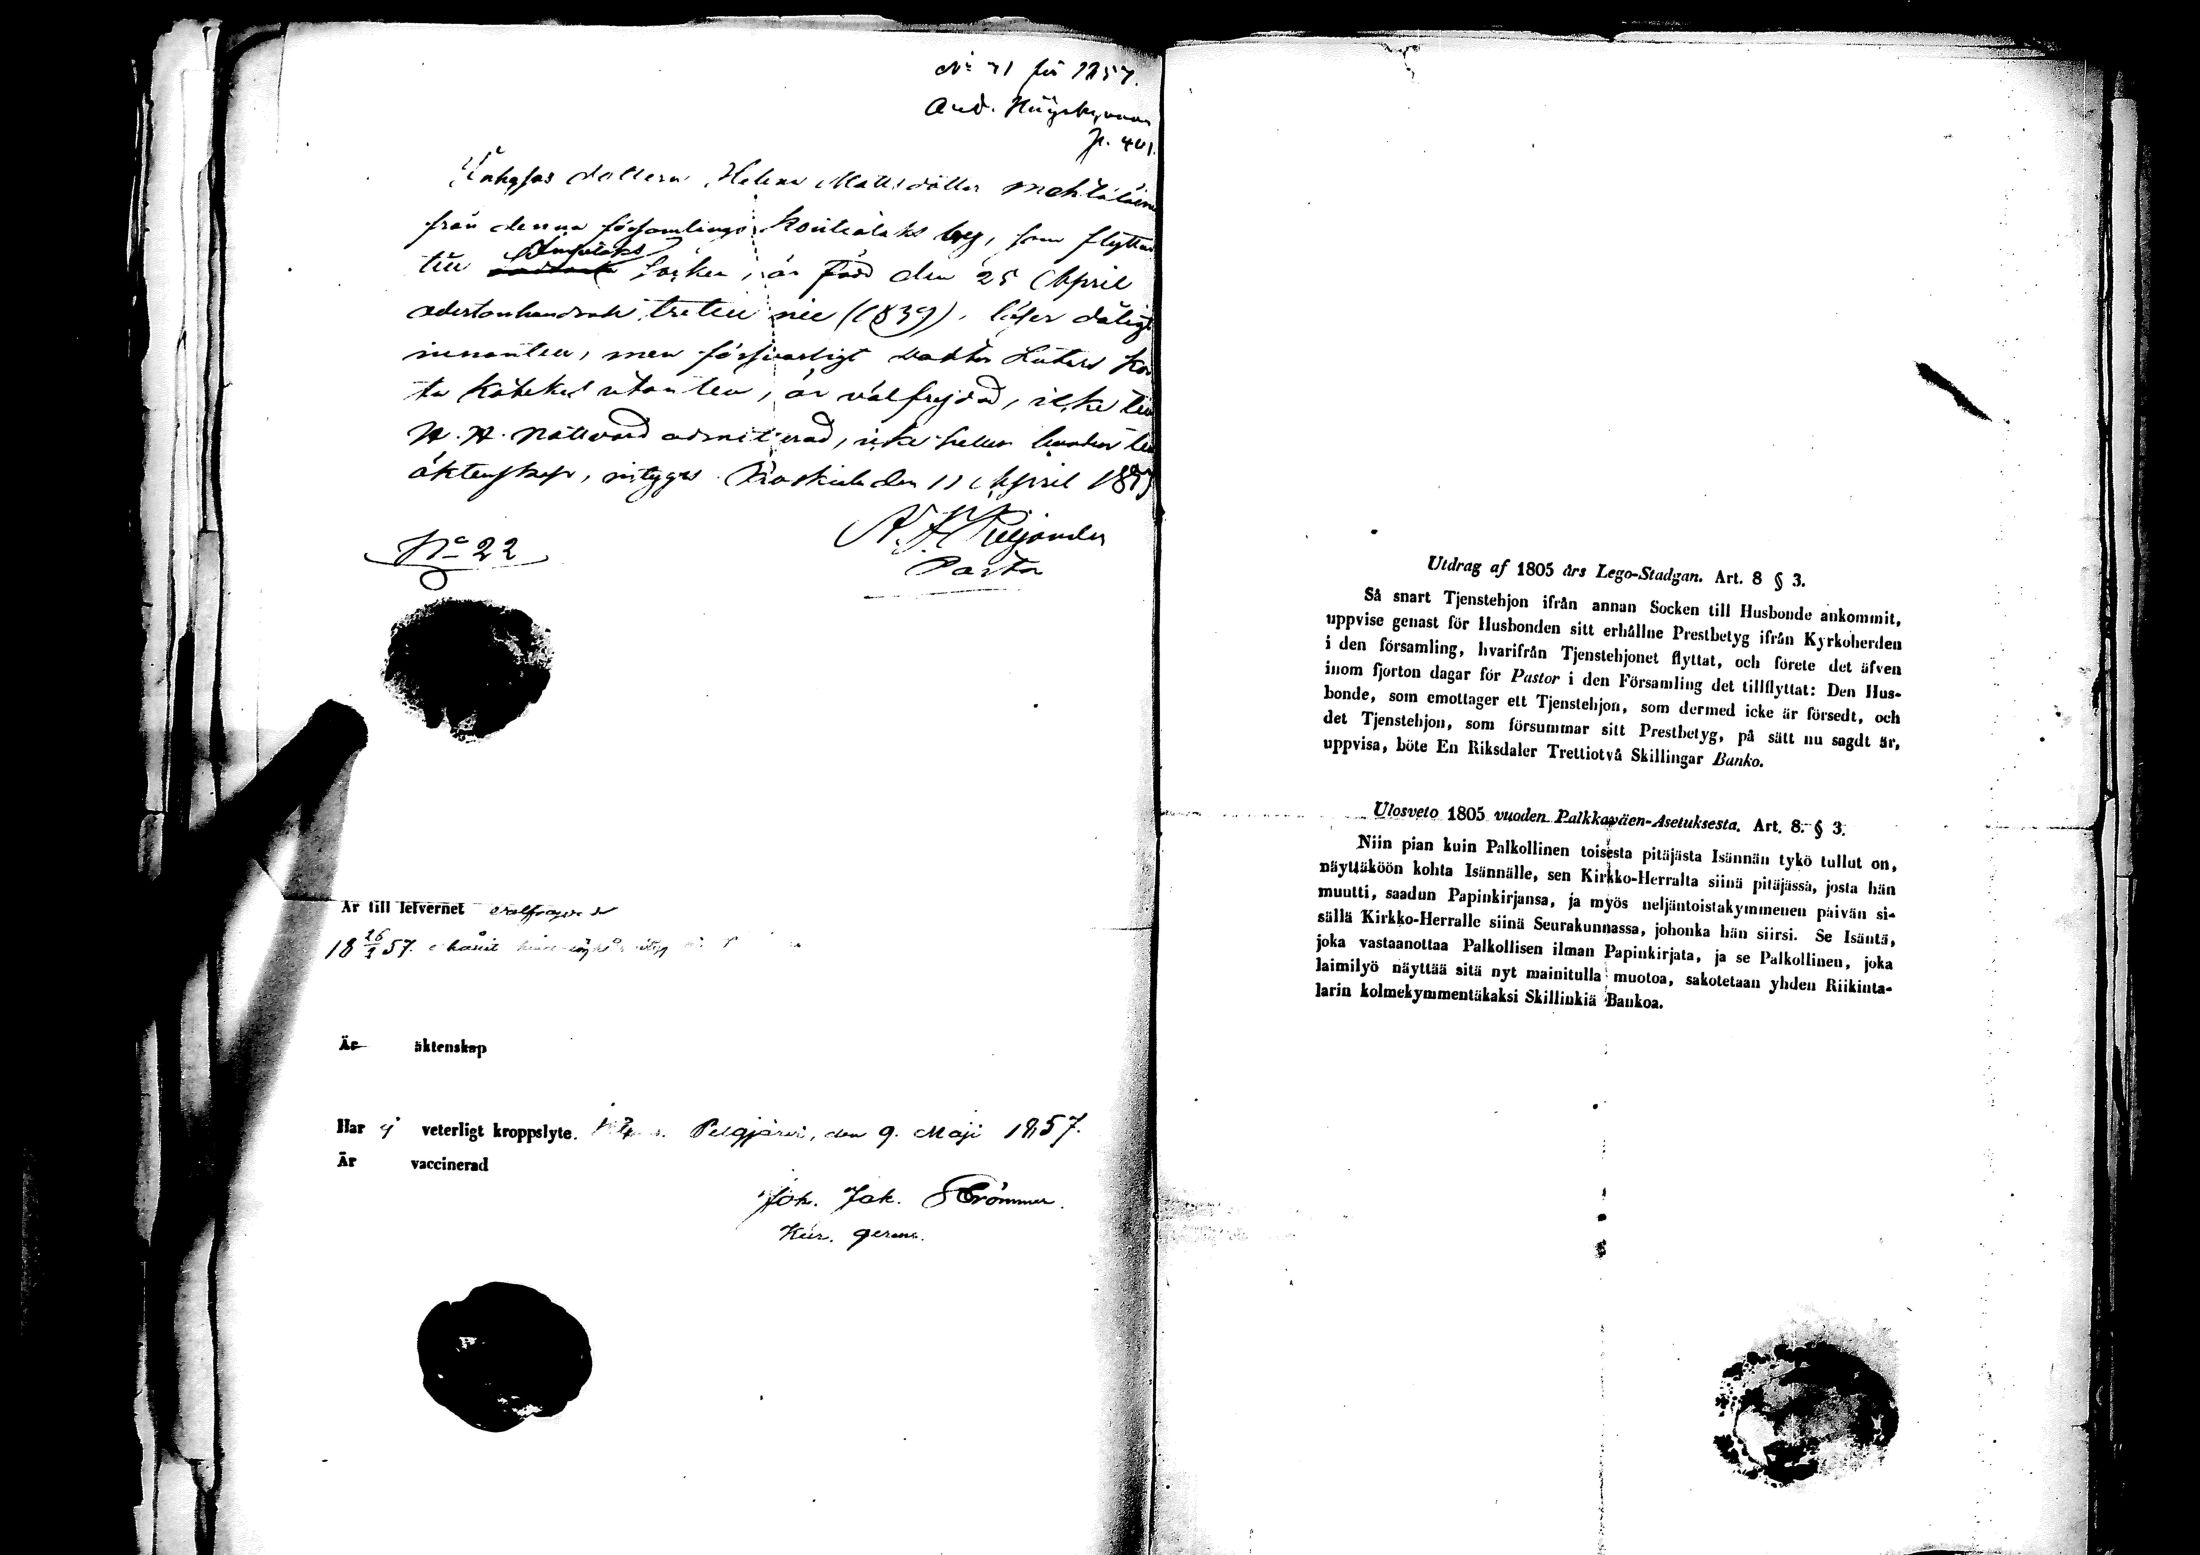 No 71 för 1857.
And.
p. 401.
dottern Helena Mattsdotter
från denna församlings by, som flyttar
till Impilaks socken, är född den 25 April
adertonhundrade trettio nie (1839), läser dåligt
innantill, men försvarligt doktor Luters kor
ta Katekes utantill, är välfrejdad, icke till
H. H. Nattvard admitterad, icke heller bunden till
äktenskap, intygas den 11 April 185
N:o 22
Pastor
Är till lefvernet välfrejdad
18 26/4 57.
Är äktenskap
Har ej veterligt kroppslyte. Pelgjärvi, den 9. Maji 1857.
Är vaccinerad
Joh. Jak. Strömmer.
Utdrag af 1805 års Lego-Stadgan. Art. 8 § 3.
Så snart Tjenstehjon ifrån annan Socken till Husbonde ankommit,
uppvise genast för Husbonden sitt erhållne Prestbetyg ifrån Kyrkoherden
i den församling, hvarifrån Tjenstehjonet flyttat, och förete det äfven
inom fjorton dagar för Pastor i den Församling det tillflyttat: Den Hus-
bonde, som emottager ett Tjenstehjon, som dermed icke är försedt, och
det Tjenstehjon, som försummar sitt Prestbetyg, på sätt nu sagdt är,
uppvisa, böte En Riksdaler Trettiotvå Skillingar Banko.
Ulosveto 1805 vuoden Palkkaväen-Asetuksesta. Art. 8. § 3.
Niin pian kuin Palkollinen toisesta pitäjästä Isännän tykö tullut on,
näyttäköön kohta Isännälle, sen Kirkko-Herralta siinä pitäjässä, josta hän
muutti, saadun Papinkirjansa, ja myös neljäntoistakymmenen päivän si-
sällä Kirkko-Herralle siinä Seurakunnassa, johonka hän siirsi. Se Isäntä,
joka vastaanottaa Palkollisen ilman Papinkirjata, ja se Palkollinen, joka
laimilyö näyttää sitä nyt mainitulla muotoa, sakotetaan yhden Riikinta-
larin kolmekymmentäkaksi Skillinkiä Bankoa.